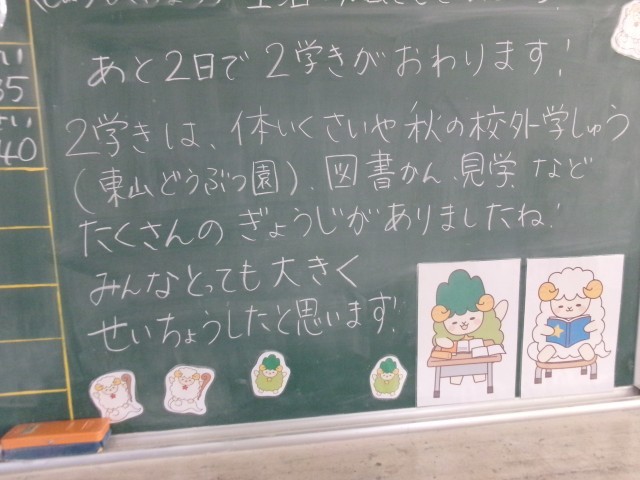 あと2日で2学きがおわります!
2学きは、体いくさいや秋の校外学しゅう
(東山どうぶつ園)、図書かん見学など
たくさんのぎょうじがありましたね!
みんなとっても大きく
せいちょうしたと思います!
い
35
さい
40